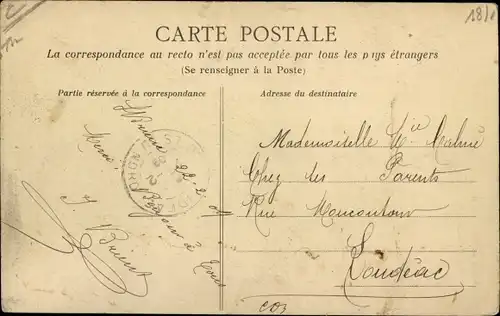 CARTE POSTALE
La correspondance au recto n'est pas acceptée par tous les pays étrangers
(Se renseigner à la Poste)
Partie réservée à la correspondance
Adresse du destinataire
22-2
Bonjour à tous
Merci
J Briend
NORD
Mademoiselle
Chez ses Parents
Rue Moncontour
Loudéac